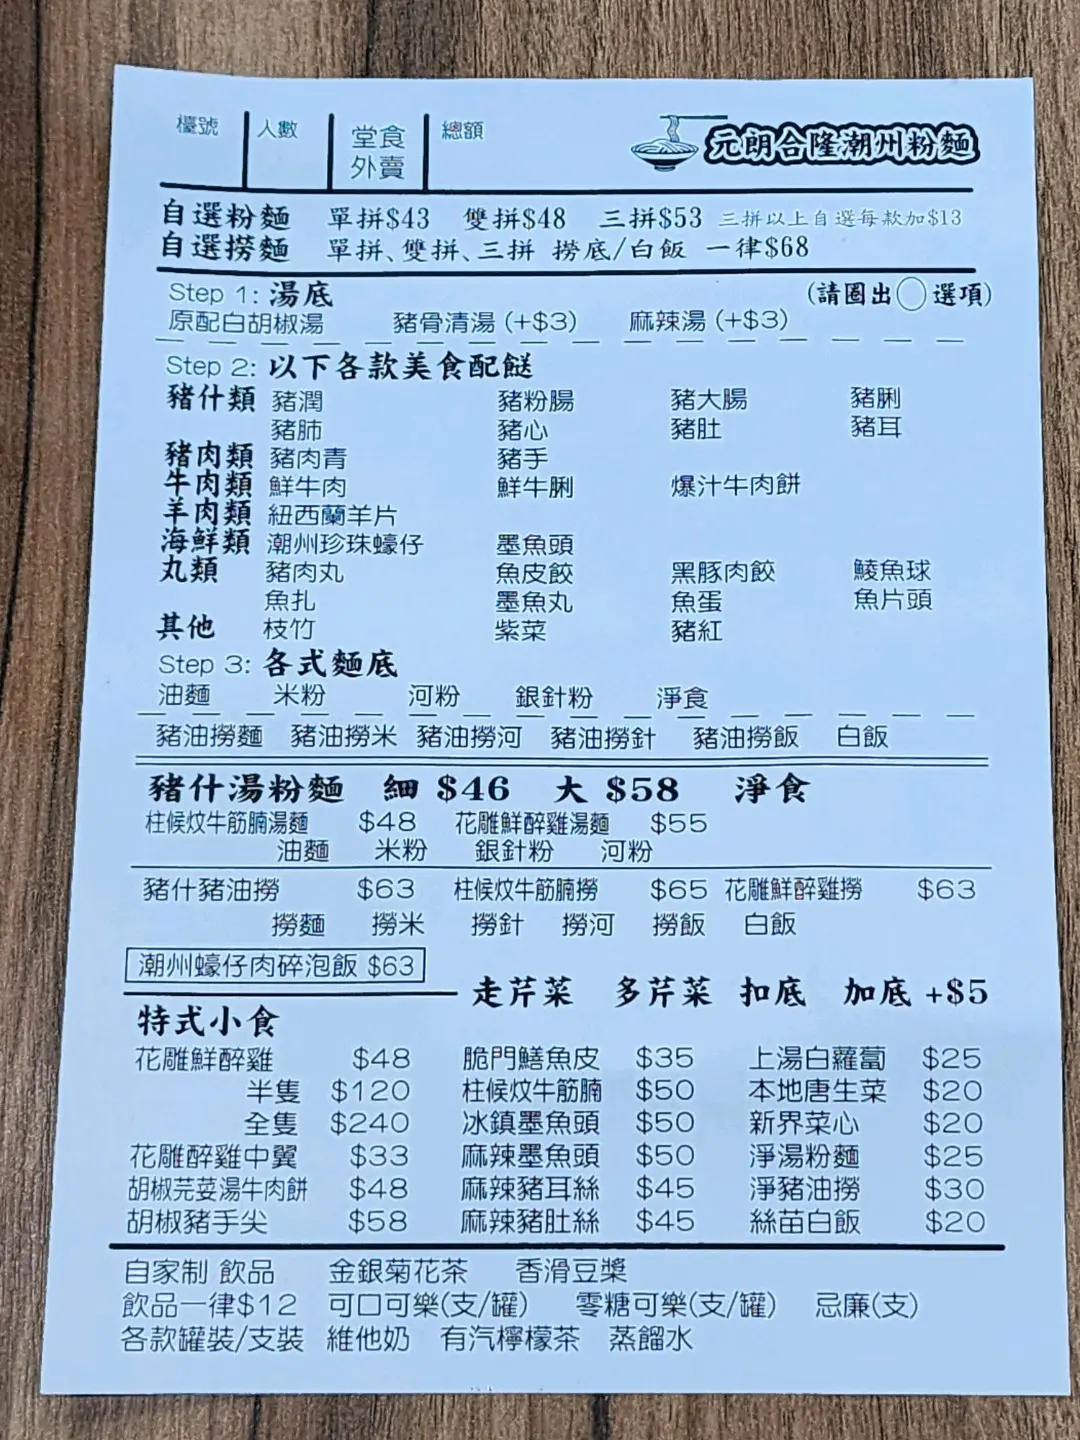 檯號 人數 堂食 外賣 總額 元朗合隆潮州粉麵
自選粉麵 單拼$43 雙拼$48 三拼$53 三拼以上自選每款加$13
自選撈麵 單拼、雙拼、三拼 撈底/白飯 一律$68
Step 1: 湯底 (請圈出◯選項)
原配白胡椒湯 豬骨清湯 (+$3) 麻辣湯 (+$3)
Step 2: 以下各款美食配餸
豬什類 豬潤 豬粉腸 豬大腸 豬脷
豬肺 豬心 豬肚 豬耳
豬肉類 豬肉青 豬手
牛肉類 鮮牛肉 鮮牛脷 爆汁牛肉餅
羊肉類 紐西蘭羊片
海鮮類 潮州珍珠蠔仔 墨魚頭
丸類 豬肉丸 魚皮餃 黑豚肉餃 鯪魚球
魚扎 墨魚丸 魚蛋 魚片頭
其他 枝竹 紫菜 豬紅
Step 3: 各式麵底
油麵 米粉 河粉 銀針粉 淨食
豬油撈麵 豬油撈米 豬油撈河 豬油撈針 豬油撈飯 白飯
豬什湯粉麵 細 $46 大 $58 淨食
柱候炆牛筋腩湯麵 $48 花雕鮮醉雞湯麵 $55
油麵 米粉 銀針粉 河粉
豬什豬油撈 $63 柱候炆牛筋腩撈 $65 花雕鮮醉雞撈 $63
撈麵 撈米 撈針 撈河 撈飯 白飯
潮州蠔仔肉碎泡飯 $63
走芹菜 多芹菜 扣底 加底 +$5
特式小食
花雕鮮醉雞 $48 脆門鱔魚皮 $35 上湯白蘿蔔 $25
半隻 $120 柱候炆牛筋腩 $50 本地唐生菜 $20
全隻 $240 冰鎮墨魚頭 $50 新界菜心 $20
花雕醉雞中翼 $33 麻辣墨魚頭 $50 淨湯粉麵 $25
胡椒芫荽湯牛肉餅 $48 麻辣豬耳絲 $45 淨豬油撈 $30
胡椒豬手尖 $58 麻辣豬肚絲 $45 絲苗白飯 $20
自家制 飲品 金銀菊花茶 香滑豆漿
飲品一律$12 可口可樂(支/罐) 零糖可樂(支/罐) 忌廉(支)
各款罐裝/支裝 維他奶 有汽檸檬茶 蒸餾水